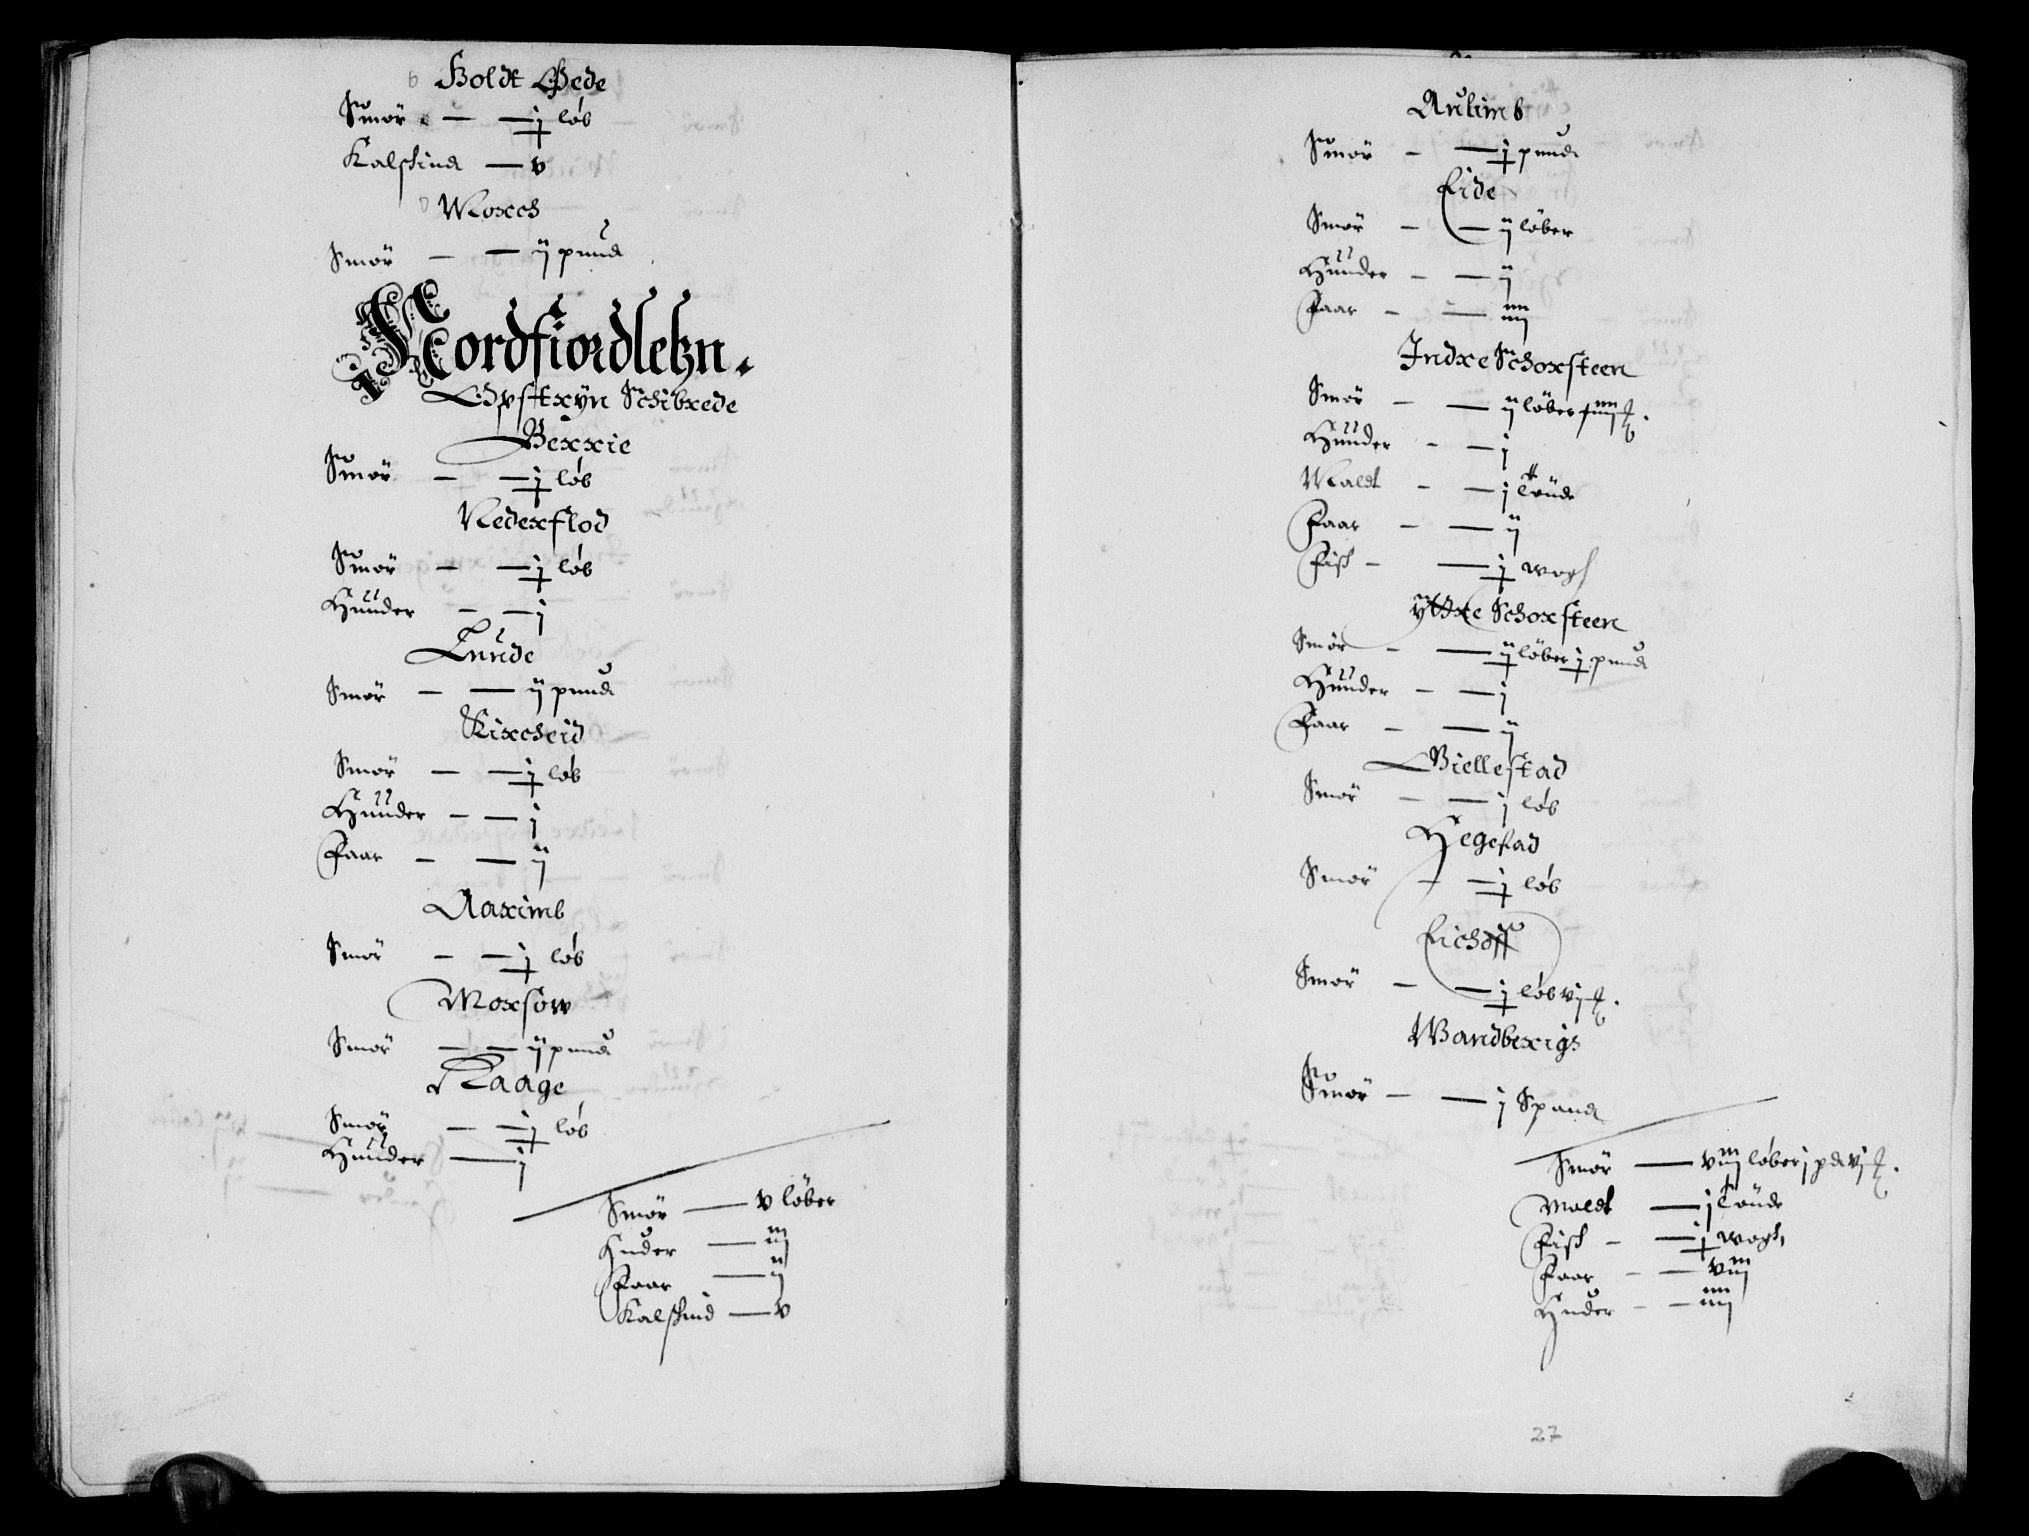 Holdt Øede
Smör — — j løb
Kalskind — v
Morch
Smör — — ij pund
Nordfiordlehn.
Opstryn Schibrede
Berrie
Smör — — j løb
Nederflod
Smör — — j løb
Huuder — — j
Lunde
Smör — — ij pund
Kircheid
Smör — — j løb
Huuder — — j
Faar — — ij
Aarimb
Smör — — j løb
Morsow
Smör — — ij pund
Raage
Smör — — j løb
Huuder — j
Smör — v løber
Huder — iij
Faar — ij
Kalskind — v
Aulimb
Smör — — j pund
Eide
Smör — — ij løber
Huuder — — ij
Faar — — iiij
Indre Schorsteen
Smör — — ij løber iiij
Huuder — — j
Maldt — — j tönde
Faar — — ij
Fisk — — j wogh
Ytre Schorsteen
Smör — — ij løber j pund
Huuder — — j
Faar — — ij
Giellestad
Smör — — j løb
Hegestad
Smör — — j løb
Eichoff
Smör — — j løb vj
Wandberigs
Smör — — j Spand
Smör — viij løber j pd vj
Maldt — j tönde
Fisk — — j wogh
Faar — — viij
Huder — — iiij
27